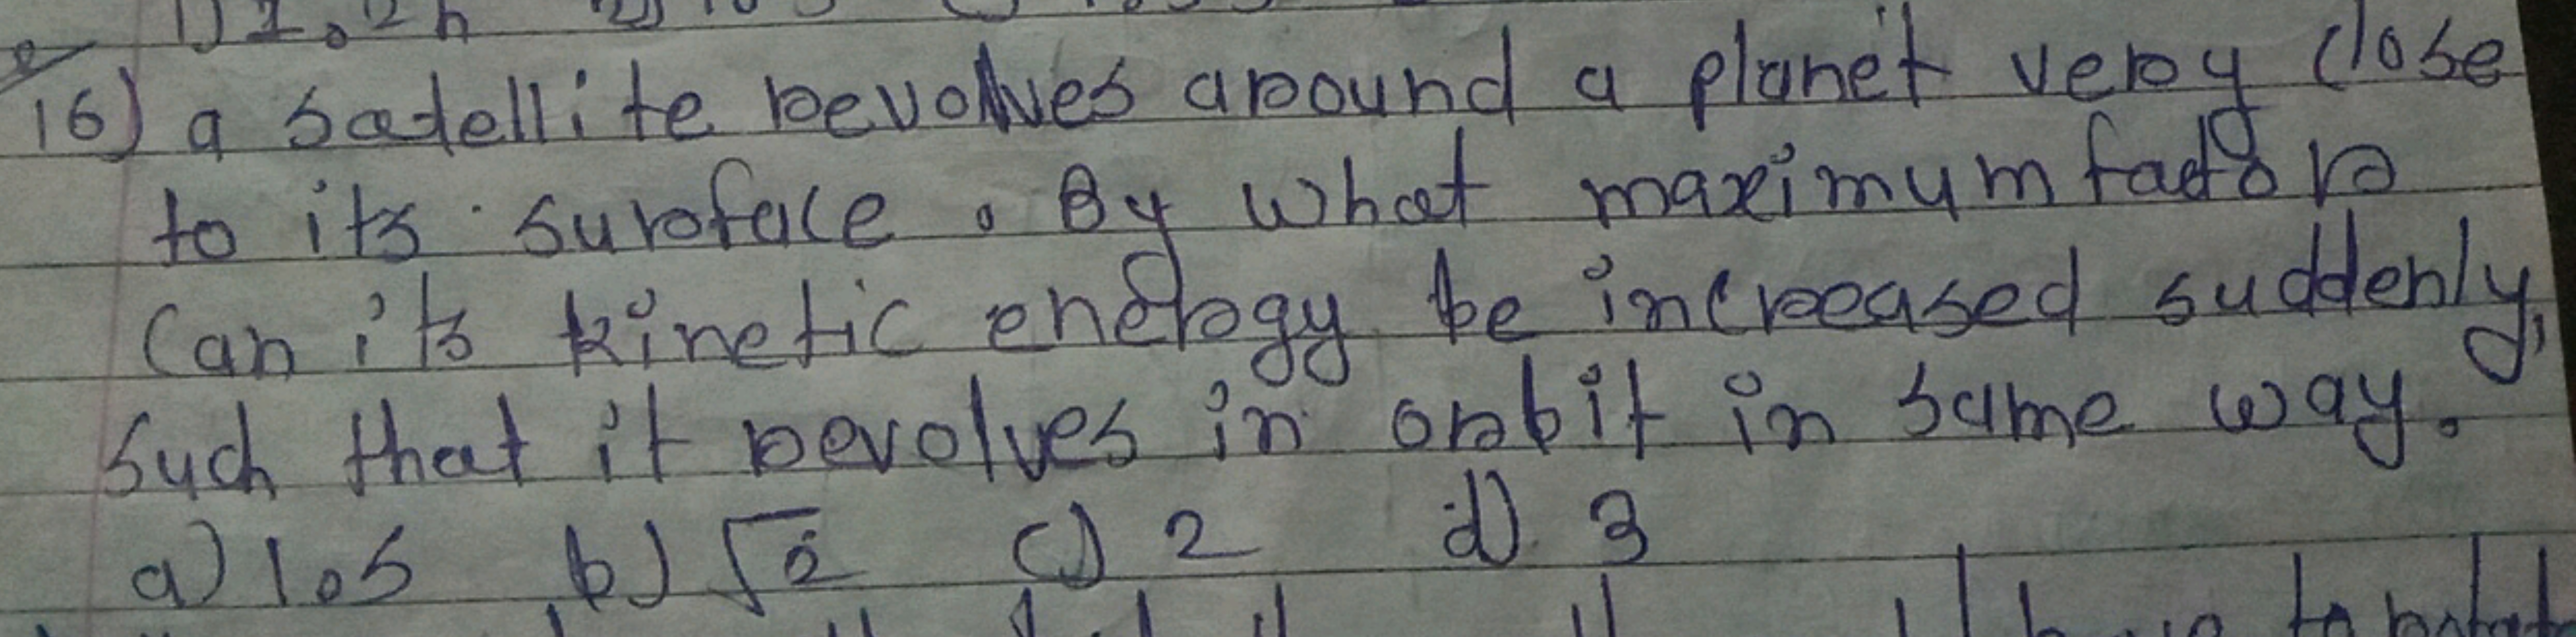 16) a satellite revolves around a planet very close
to its surface. By what maximum factor
can its kinetic energy be increased suddenly,
such that it revolves in orbit in same way.
a) 1.5 b) √2 c) 2 d) 3